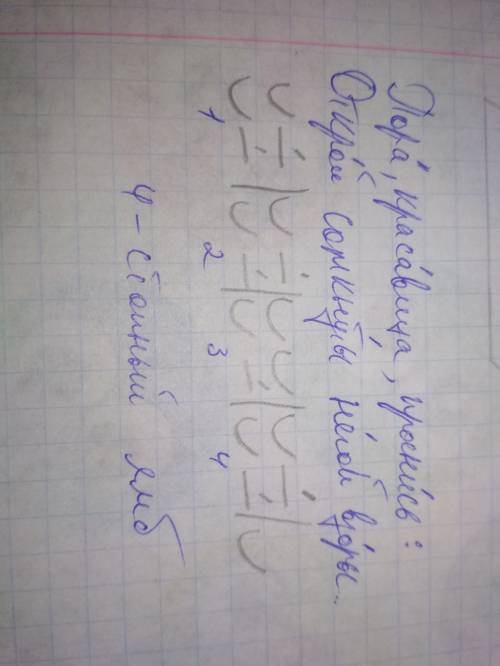 Пора́, краса́вица, просни́сь:
Откро́й сомкну́ты не́гой взо́ры..
∪ — / ∪ — / ∪ ∪ / ∪ —
∪ — / ∪ — / ∪ — / ∪ — / ∪
1 2 3 4
4-стопный ямб